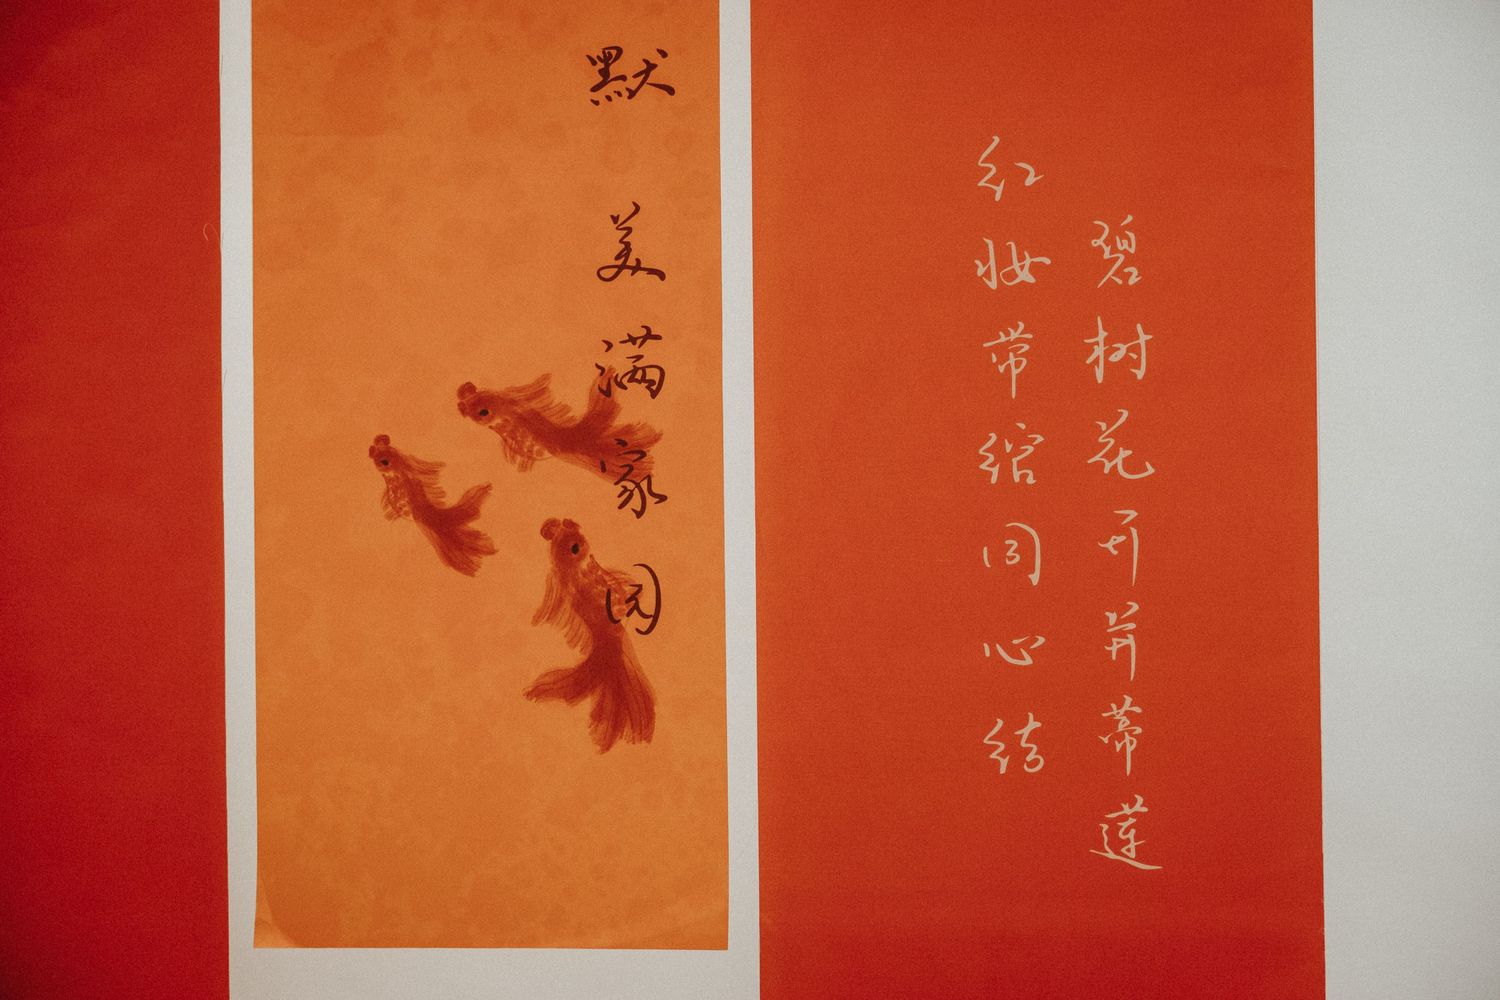 碧树花开并蒂莲
红妆带绾同心结
默
美满家园